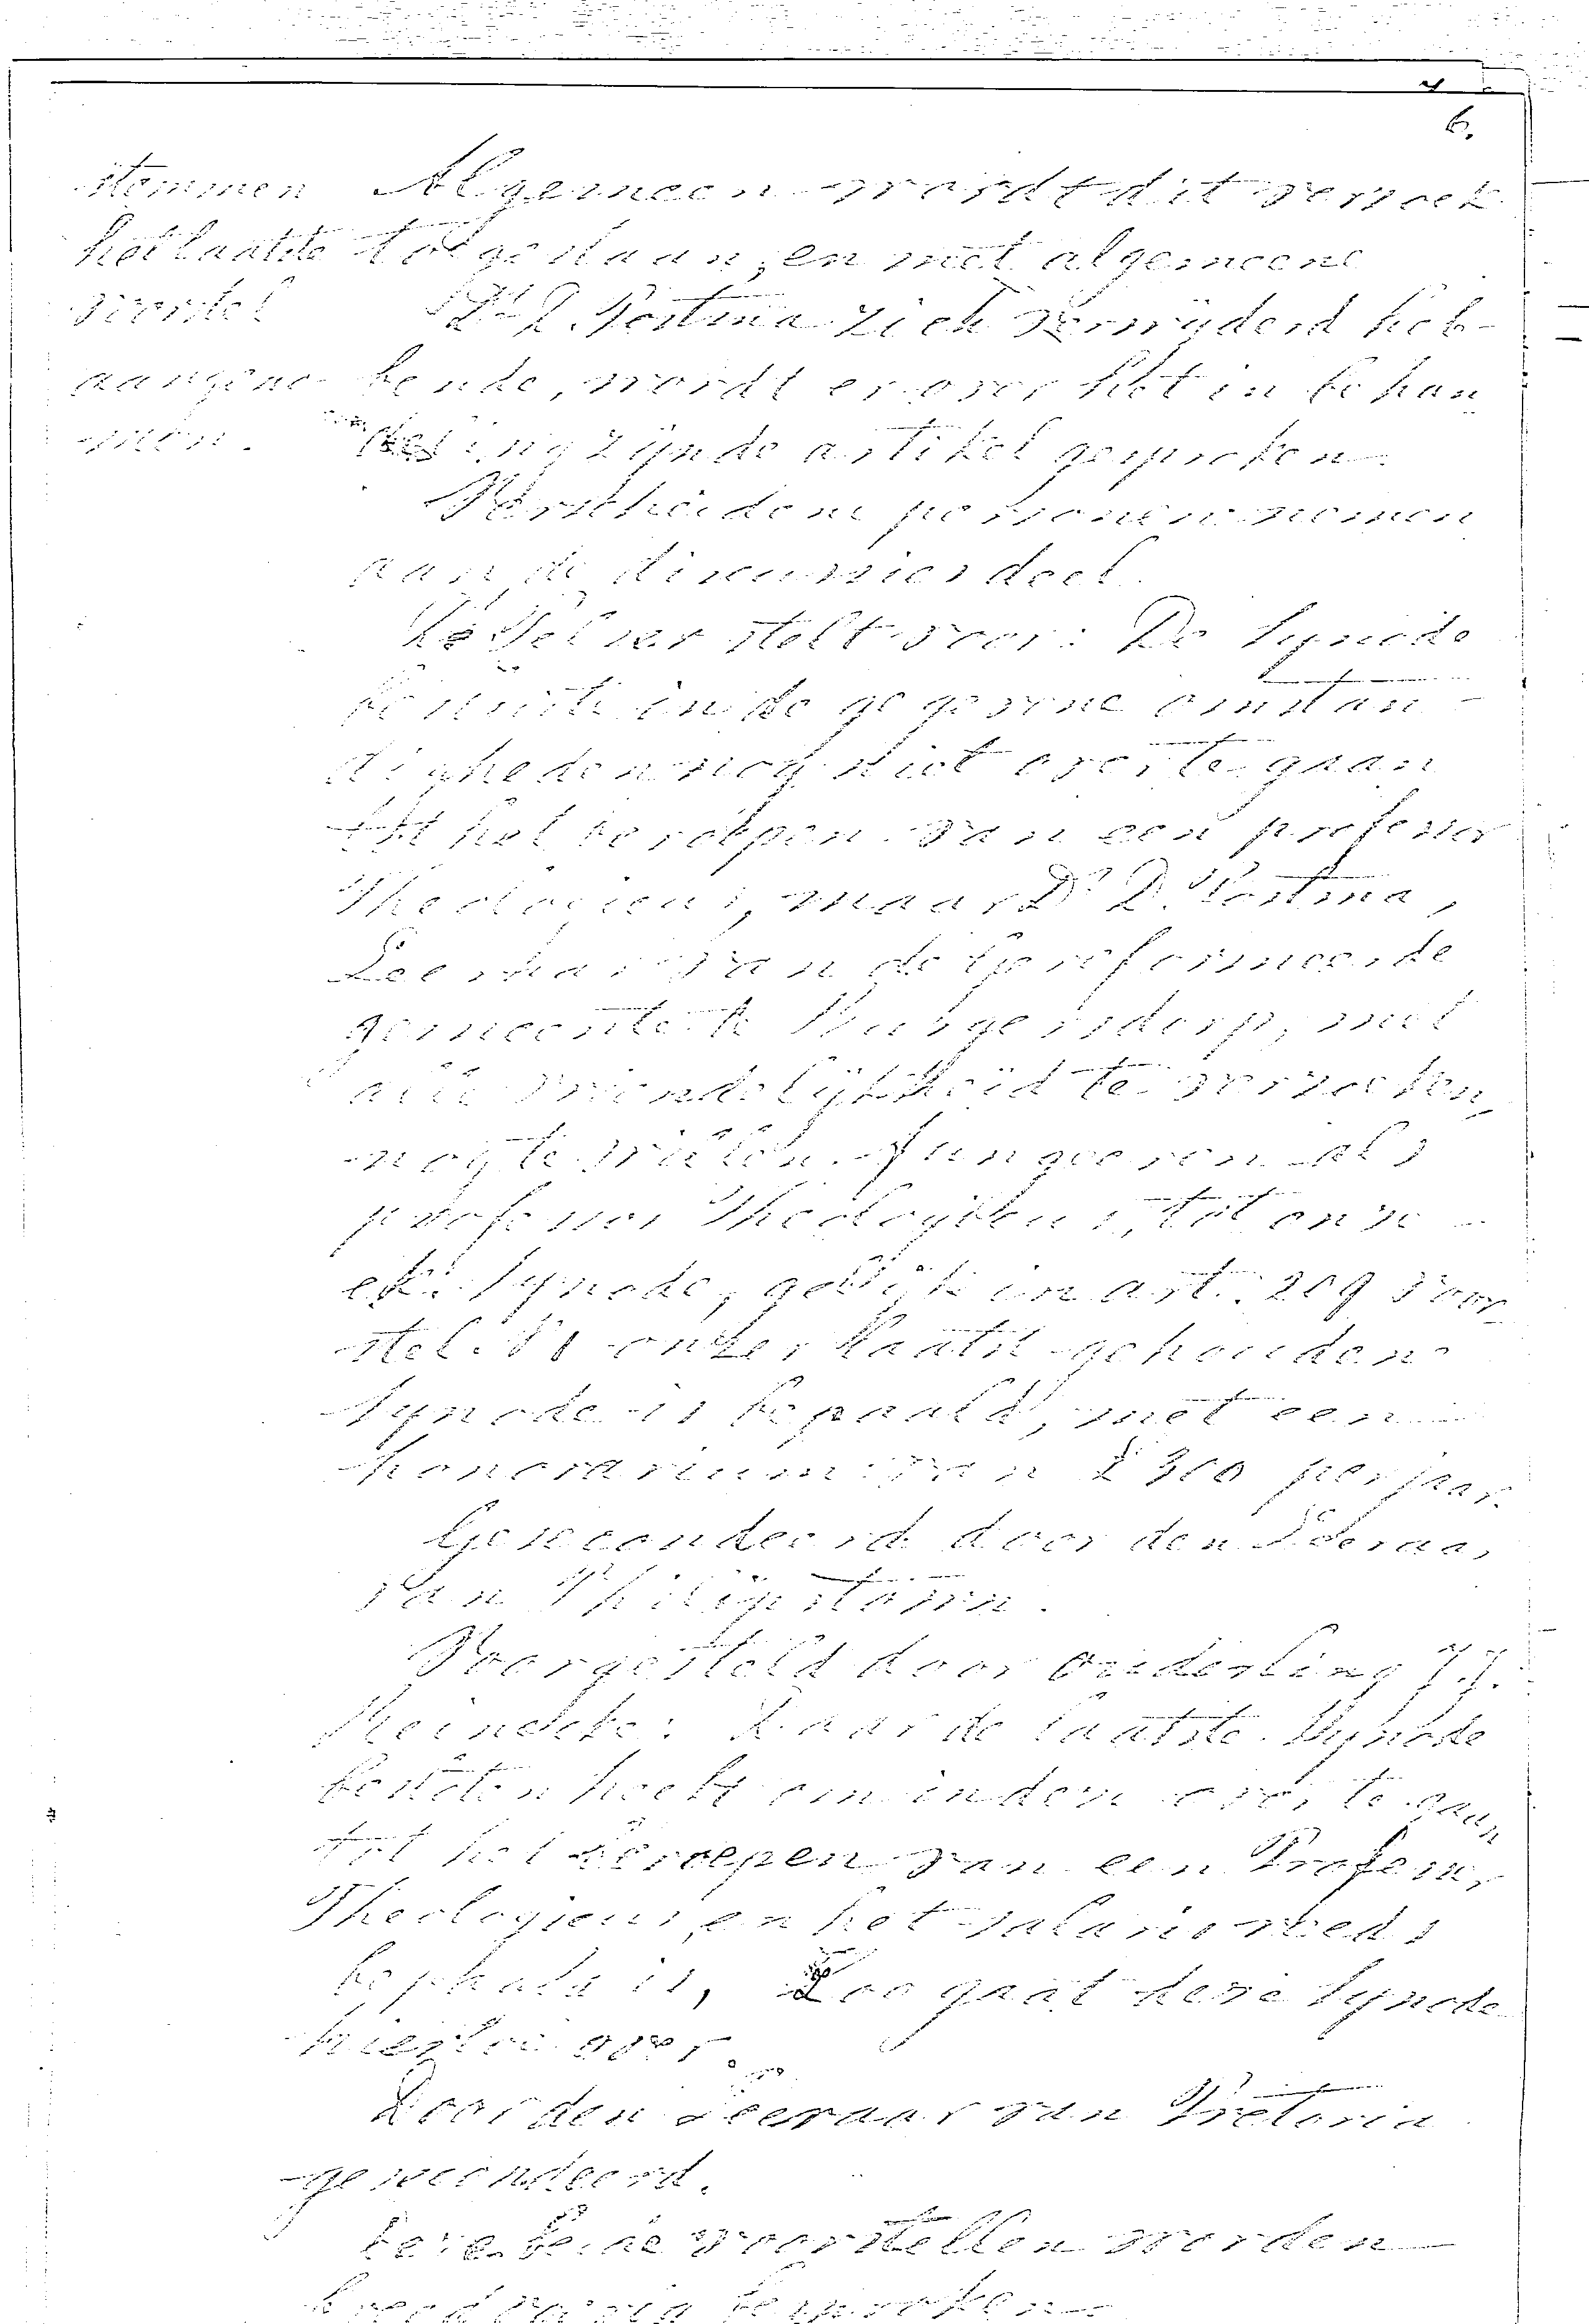 6.
stemmen
het laatste
voorstel
aangeno-
men.
Algemeen wordt dit verzoek
toegestaan, en met algemeene
Ds D. Postma zich verwijderd heb-
bende, wordt er over het in behan
deling zijnde artikel gesproken.
Verscheidene personen nemen
aan de discussies deel.
stelt voor: De Synode
besluite in de gegevene omstan-
digheden nog niet over te gaan
tot het beroepen van een professor
Theologicus, maar Ds D. Postma,
Leeraar van de Gereformeerde
gemeente te Burgersdorp, met
alle vriendelijkheid te verzoeken,
nog te willen fungeeren als
professor Theologicus, tot onze
Synode, gelijk in art. 209 voor
stel onzer laatst gehouden
Synode is bepaald, met een
honorarium van £300 per jaar.
Gesecondeerd door den Leeraar
van Philipstown.
Voorgesteld door Ouderling J. J.
Daar de laatste Synode
besloten heeft om indezen over te gaan
tot het beroepen van een Professor
Theologicus, en het salaris reeds
bepaald is, Zoo gaat deze Synode
hiertoe over.
Door den Leeraar van Pretoria
gesecondeerd.
Deze beide voorstellen worden
besproken